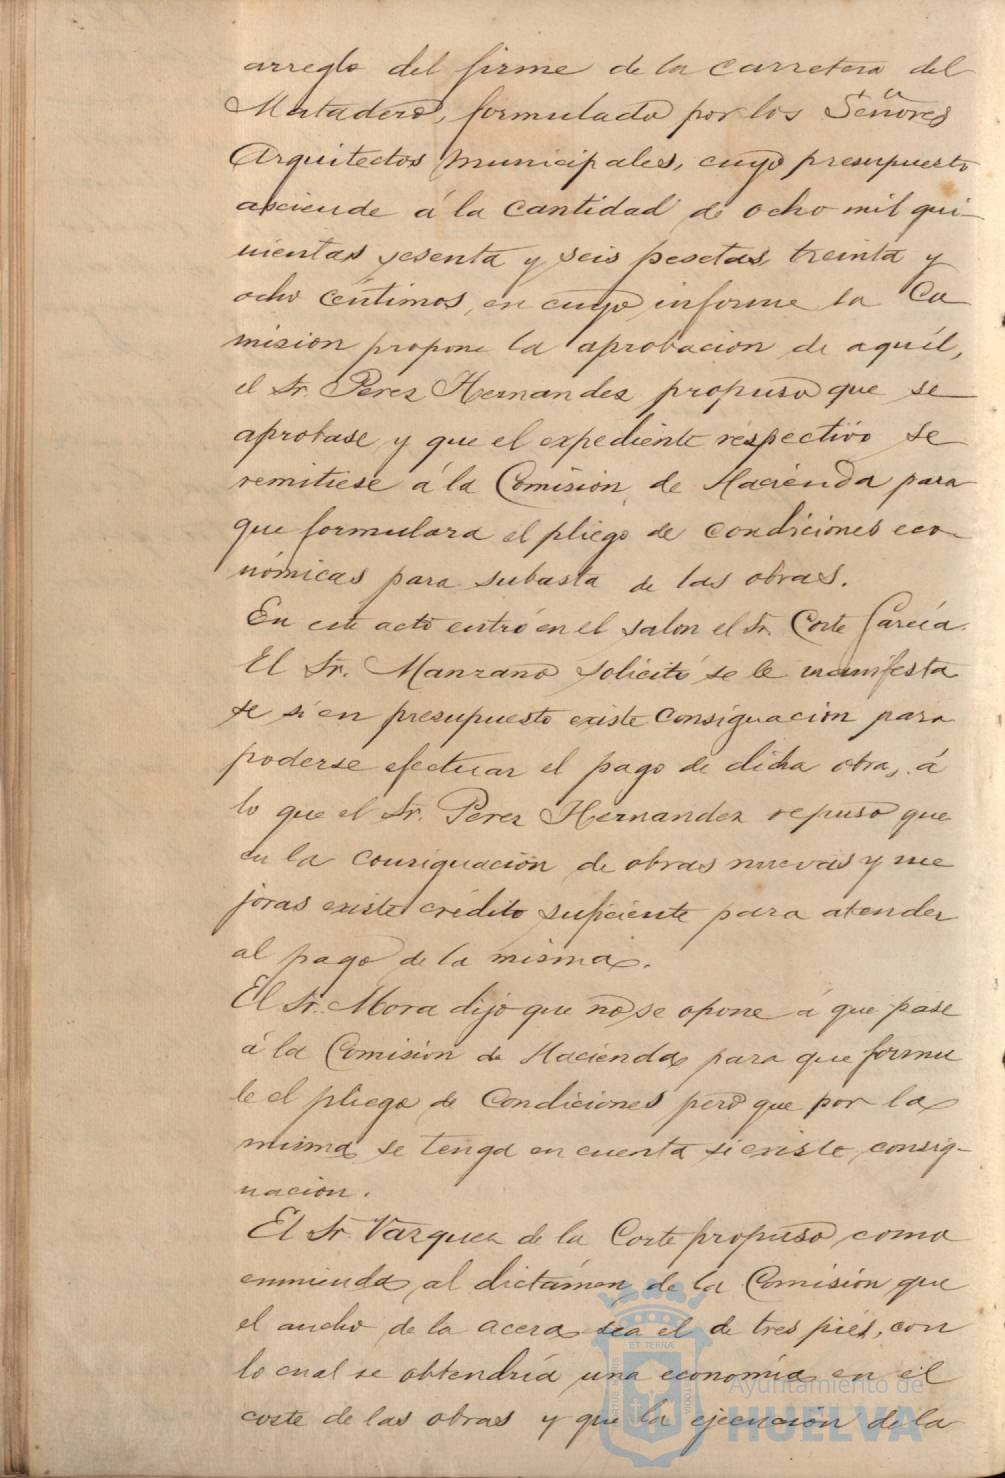 arreglo del firme de la carretera del
Matadero, formulado por los Señores
Arquitectos Municipales, cuyo presupuesto
asciende á la cantidad de ocho mil qui-
nientas sesenta y seis pesetas, treinta y
ocho céntimos, en cuyo informe la Co
misión propone la aprobación de aquél,
el Sr. Perez Hernandez propuso que se
aprobase y que el expediente respectivo se
remitiese á la Comisión de Hacienda para
que formulara el pliego de condiciones eco-
nómicas para subasta de las obras.
En este acto entró en el salon el Sr. Corte García.
El Sr. Manzano solicitó se le manifesta
se si en presupuesto existe consignación para
poderse efectuar el pago de dicha obra, á
lo que el Sr. Perez Hernandez repuso que
en la consignación de obras nuevas y me
joras existe crédito suficiente para atender
al pago de la misma.
El Sr. Mora dijo que no se opone á que pase
á la Comisión de Hacienda para que formu
le el pliego de Condiciones pero que por la
misma se tenga en cuenta si existe consig-
nacion.
El Sr. Vazquez de la Corte propuso como
enmienda al dictámen de la Comisión que
el ancho de la acera sea el de tres piés, con
lo cual se obtendría una economía en el
coste de las obras y que la ejecución de la
Ayuntamiento de
HUELVA